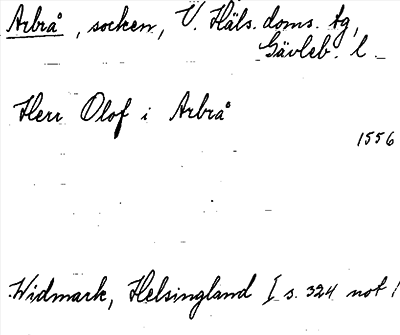 Arbrå, socken, V. Häls. doms. tg,
Gävleb. l.
Herr Olof i Arbrå
1556
Widmark, Helsingland I s. 324 not 1